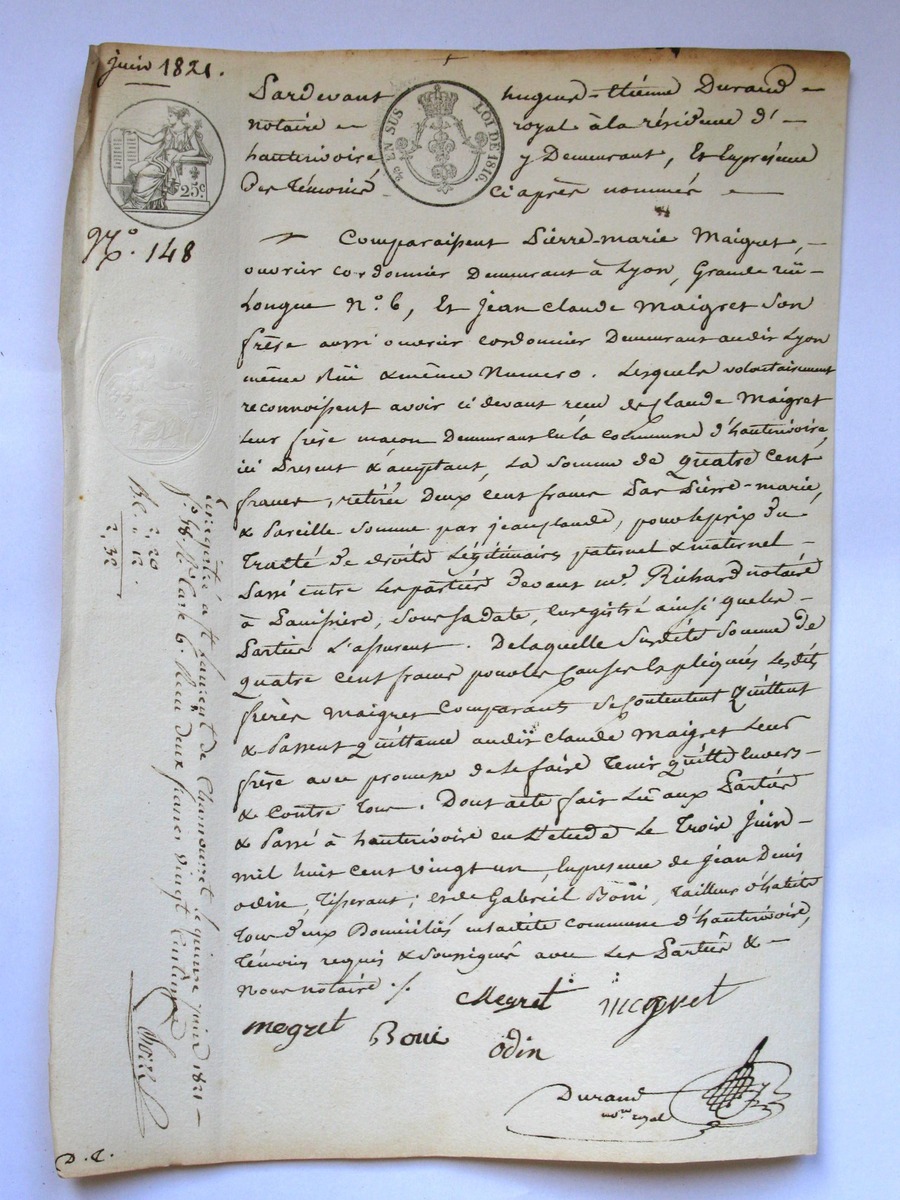 juin 1821.
Pardevant hugues-Etienne Durand
notaire royal à la résidence d'
hauterivoire y Demeurant, Et En présence
Des Témoins ci après nommés
EN SUS LOI DE 1816.
25c
No. 148
Comparaissent Pierre-marie Maigret,
ouvrier cordonnier Demeurant à Lyon, Grande rüe
Longue No. 6, Et jean claude Maigret Son
frère aussi ouvrier cordonnier Demeurant audit Lyon
même Rüe & même Numero. Lesquels volontairement
reconnoissent avoir ci devant recu de Claude Maigret
Leur frère maçon Demeurant En la commune d'hauterivoire,
ici Present & acceptant, La Somme de quatre Cent
francs, retirée Deux cent francs Par Pierre-marie,
& Pareille Somme par jean claude, pour le prix du
Traitté de droits Légitimaires paternel & maternel
Passé entre Les parties devant me. Richard notaire
à Panissière, Sous Sa date, Enregistré ainsi que les
Parties L'assurent. De laquelle Susdite Somme de
quatre cent francs pour les Causes Expliquées Lesdits
frères Maigret Comparants Se Contentent Quittent
& Passent Quittance audit Claude Maigret Leur
frère avec promesse de le faire Tenir Quitte Envers
& Contre Tous. Dont acte fait Lû aux Parties
& Passé à hauterivoire en L'etude Le Trois Juin
mil huit cent vingt un, En presence de Jean Denis
odin, Tisserant; et de Gabriel Boüi, Tailleur d'habits
Tous deux Domiciliés en ladite commune d'hauterivoire,
Témoins requis & Soussignés avec Les Parties &
Nous notaire ./.
megret CMegret megret
Boui odin
Durand
nore royal
Enregistré à st Laurent de Chamousset le quinze juin 1821
fo. 48 Ro. Case 6. Recu deux francs vingt Centimes
2,20
2,32
D.C.